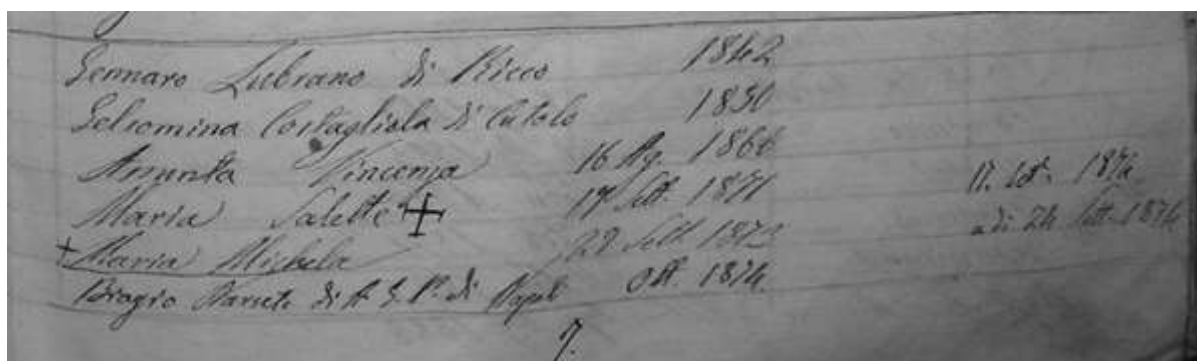 Gennaro Lubrano di Ricco 1842
Gelsomina Costagliola di Cutolo 1850
Assunta Vincenza 16 Ag. 1866
Maria Salette 17 Sett. 1871 17. 1874
Maria Michela 29. Sett. 1872 adi 24 Sett. 1874
Biagio di A. G. P. di Napoli Ott. 1874
7.